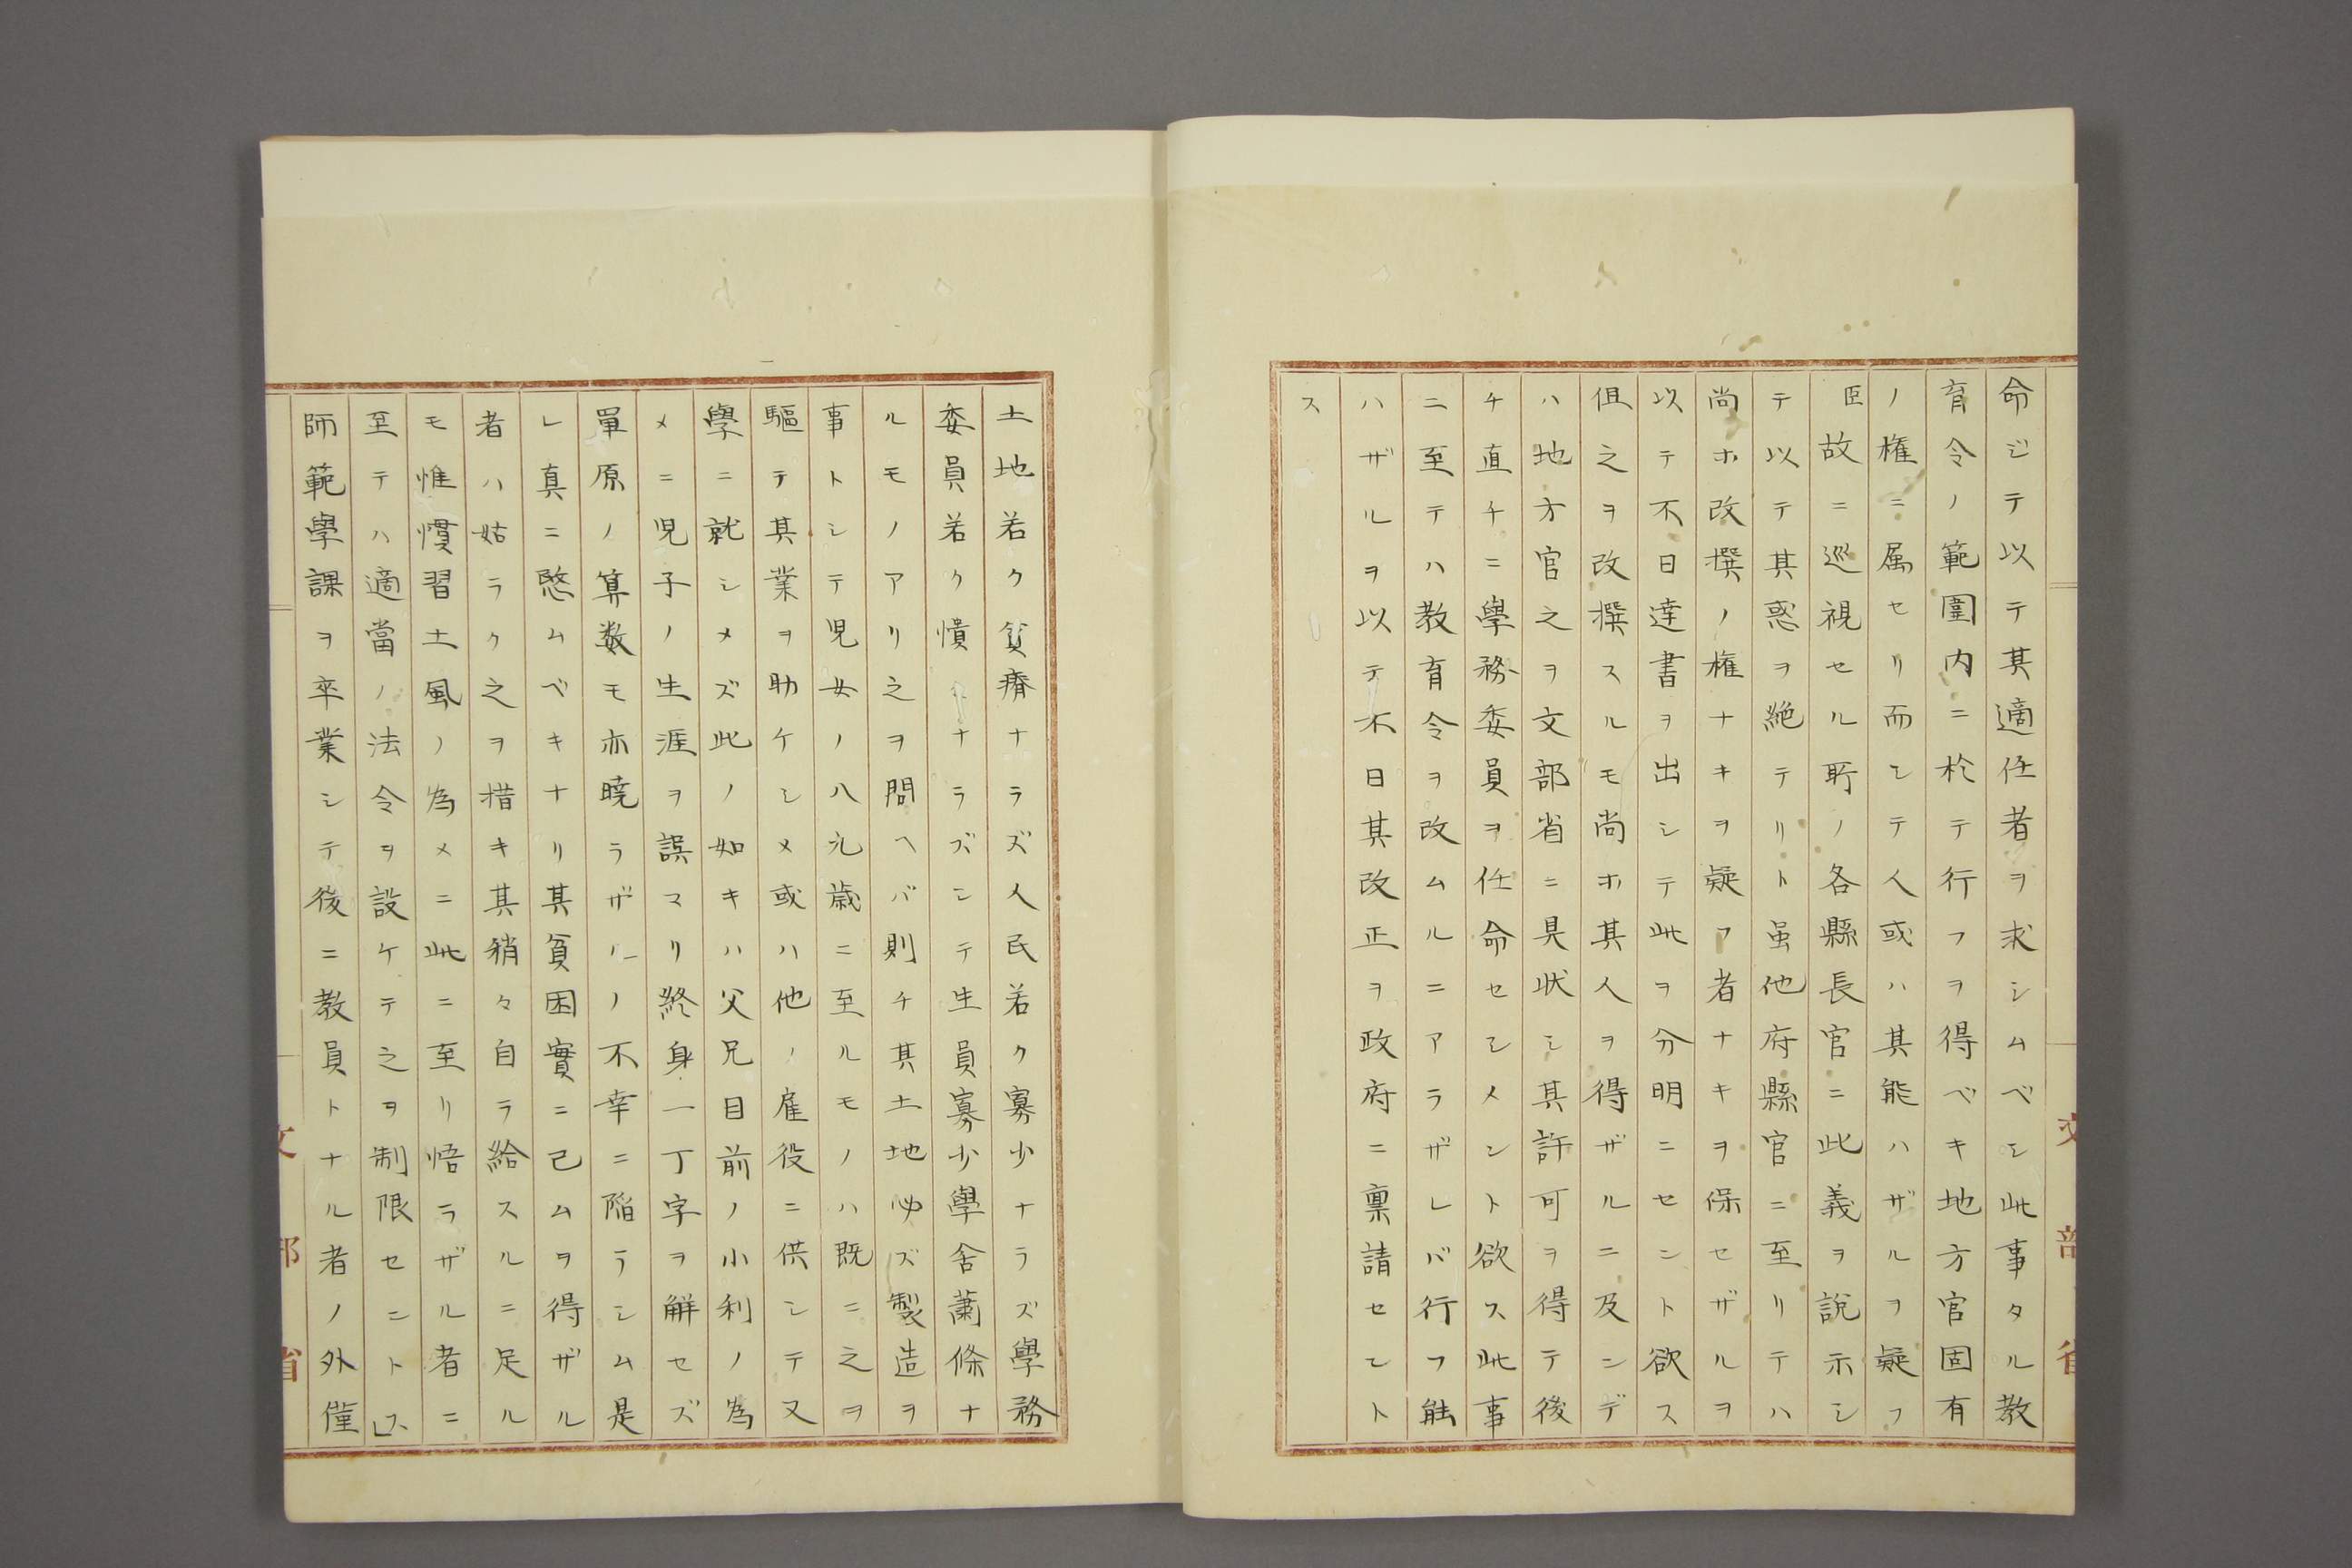 命ジテ以テ其適任者ヲ求シムベシ此事タル教
育令ノ範圍内ニ於テ行フヲ得ベキ地方官固有
ノ権ニ属セリ而シテ人或ハ其能ハザルヲ疑フ
臣故ニ巡視セル所ノ各縣長官ニ此義ヲ說示シ
テ以テ其惑ヲ絶テリト虽他府縣官ニ至リテハ
尚ホ改撰ノ権ナキヲ疑フ者ナキヲ保セザルヲ
以テ不日達書ヲ出シテ此ヲ分明ニセント欲ス
但之ヲ改撰スルモ尚ホ其人ヲ得ザルニ及ンデ
ハ地方官之ヲ文部省ニ具状シ其許可ヲ得テ後
チ直チニ學務委員ヲ任命セシメント欲ス此事
ニ至テハ教育令ヲ改ムルニアラザレバ行フ能
ハザルヲ以テ不日其改正ヲ政府ニ稟請セント
ス
文部省
土地若ク貧瘠ナラズ人民若ク寡少ナラズ學務
委員若ク憒々ナラズシテ生員寡少學舍蕭條ナ
ルモノアリ之ヲ問ヘバ則チ其土地必ズ製造ヲ
事トシテ児女ノ八九歳ニ至ルモノハ既ニ之ヲ
驅テ其業ヲ助ケシメ或ハ他ノ雇役ニ供シテ又
學ニ就シメズ此ノ如キハ父兄目前ノ小利ノ為
メニ児子ノ生涯ヲ誤マリ終身一丁字ヲ解セズ
單原ノ算数モ亦曉ラザルノ不幸ニ陥ラシム是
レ真ニ愍ムベキナリ其貧困實ニ已ムヲ得ザル
者ハ姑ラク之ヲ措キ其稍々自ラ給スルニ足ル
モ惟慣習土風ノ為メニ此ニ至リ悟ラザル者ニ
至テハ適當ノ法令ヲ設ケテ之ヲ制限セントス
師範學課ヲ卒業シテ後ニ教員トナル者ノ外僅
文部省